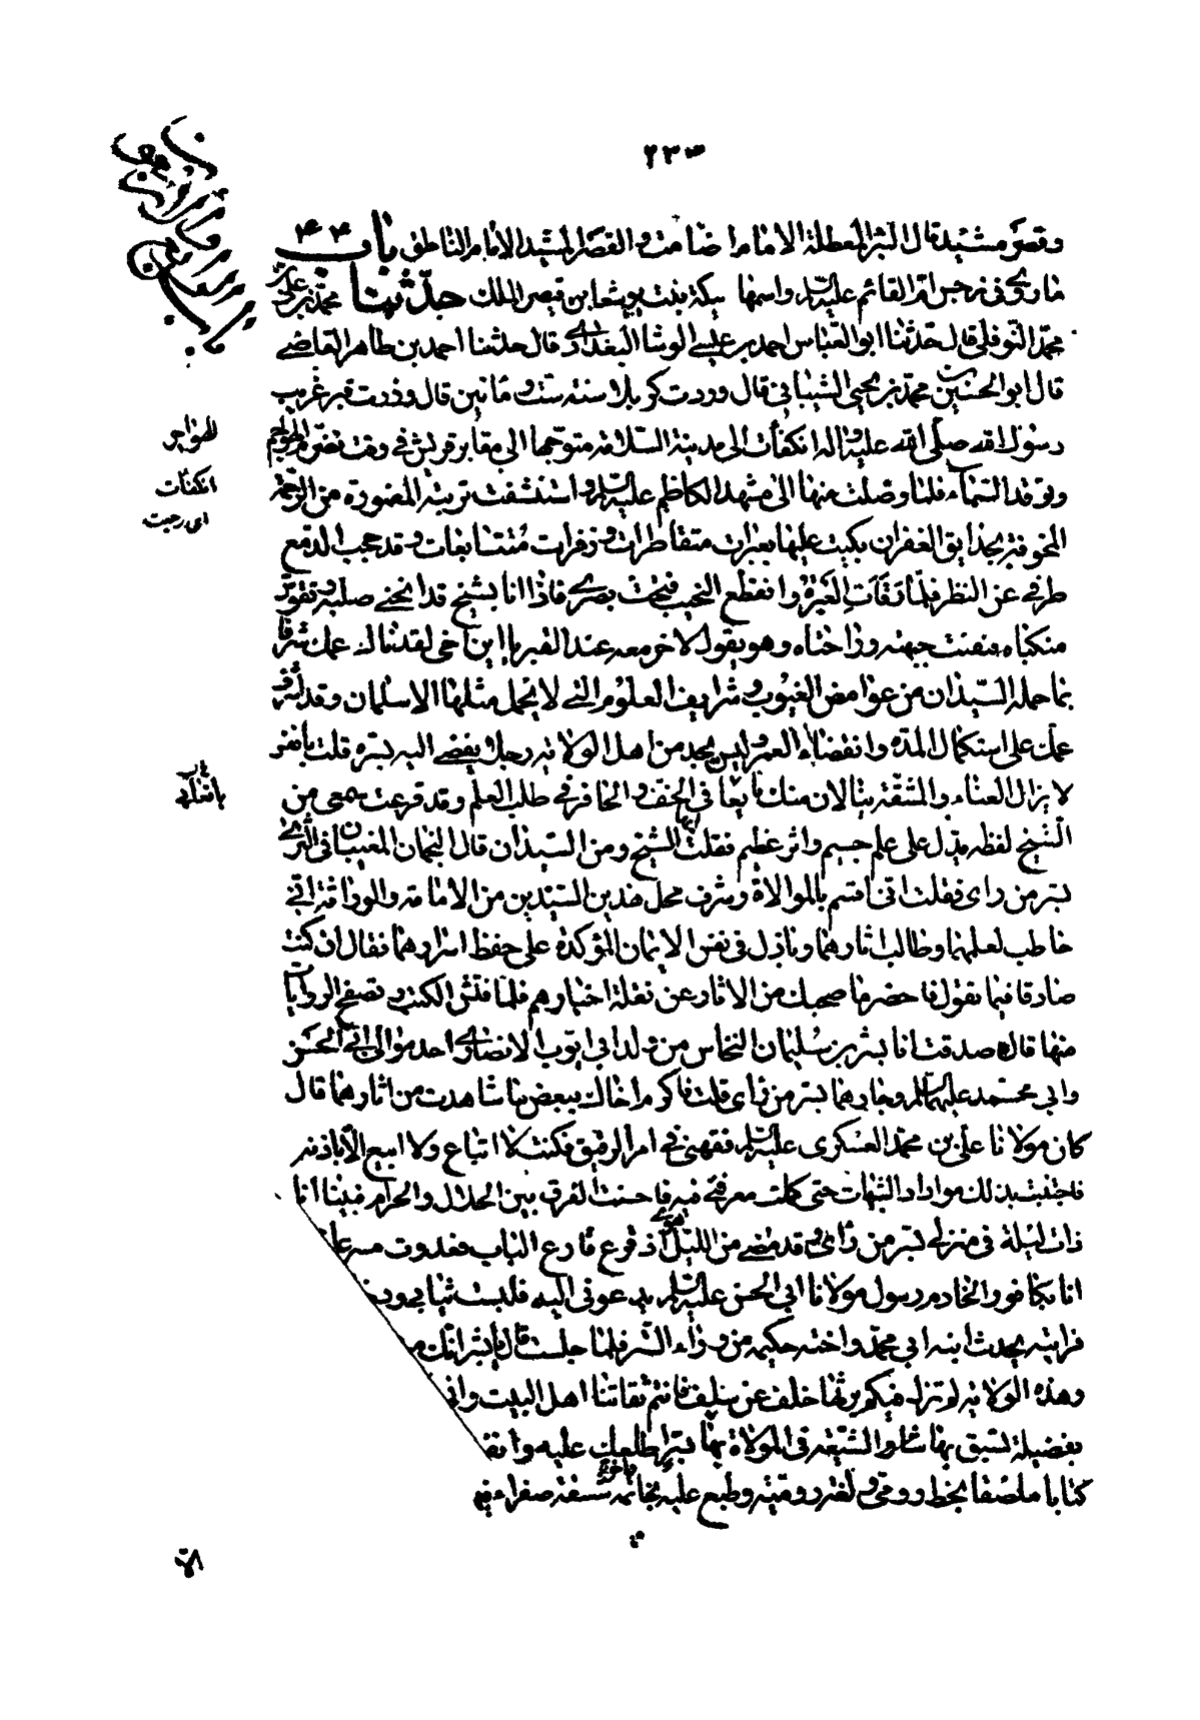 ٢٣٣
وقصر مشيد قال البئر المعطلة الامام الصامت والقصر المشيد الامام الناطق باب ۴۴
ما روى في نرجس ام القائم عليه السلام واسمها مليكة بنت يشوعا بن قيصر الملك حدثنا محمد بن علي بن
محمد النوفلي قال حدثنا ابو العباس احمد بن عيسى الوشا البغدادي قال حدثنا احمد بن طاهر القاضي
قال ابو الحسين محمد بن يحيى الشيباني قال وردت كربلا سنة ست ومائتين قال وزرت قبر غريب
رسول الله صلى الله عليه واله انكفأت الى مدينة السلام متوجها الى مقابر قريش في وقت تضرم الهواجر
وتوقد السماء فلما وصلت منها الى مشهد الكاظم عليه السلام واستنشقت تربته المغمورة من الرحمة
المحفوفة بحدايق الغفران بكيت عليها بعبرات متقاطرات وزفرات متتابعات وقد حجب الدمع
طرفي عن النظر فلما رقأت العبرة وانقطع النحيب فتحت بصري فاذا انا بشيخ قد انحنى صلبه وتقوس
منكباه وثفنت جبهته وراحتاه وهو يقول لاخر معه عند القبر يا ابن اخي لقد نال عمك شرفا
بما حمله السيدان من غوامض الغيوب وشرايف العلوم التي لا يحمل مثلها الا سلمان وقد اشرف
عمك على استكمال المدة وانقضاء العمر وليس يجد من اهل الولاية رجلا يفضي اليه بسره قلت يا نفس
لا يزال العناء والمشقة ينالان منك باتعابي الخف والحافر في طلب العلم وقد قرعت سمعي من
الشيخ لفظة يدل على علم جسيم واثر عظيم فقلت ايها الشيخ ومن السيدان قال النجمان المغيبان في الثرى
بسر من راى فقلت اني اقسم بالموالاة وشرف محل هذين السيدين من الامامة والوراثة اني
خاطب لعلمهما وطالب اثارهما وباذل في نفس الايمان المؤكدة على حفظ اسرارهما فقال ان كنت
صادقا فيما تقول فاحضر ما صحبك من الاثار عن نقلة اخبارهم فلما فتش الكتب وتصفح الروايات
منها قال صدقت انا بشر بن سليمان النخاس من ولد ابي ايوب الانصاري احد موالي ابي الحسن
وابي محمد عليهما السلام وجارهما بسر من راى قلت فاكرم اخاك ببعض ما شاهدت من اثارهما قال
كان مولانا علي بن محمد العسكري عليه السلام فقهني في امر الرقيق فكنت لا ابتاع ولا ابيع الا باذنه
فاجتنبت بذلك موارد الشبهات حتى كملت معرفتي فيه فاحسنت الفرق بين الحلال والحرام فبينا انا
ذات ليلة في منزلي بسر من راى وقد مضى من الليل هوى اذ قرع قارع الباب فغدوت مسرعا
انا بكافور الخادم رسول مولانا ابي الحسن عليه السلام يدعوني اليه فلبست ثيابي
فرايته يحدث ابنه ابي محمد واخته حكيمه من وراء الستر فلما جلست قال يا بشر انك
وهذه الولاية لم تزل فيكم يرثها خلف عن سلف فانتم ثقاتنا اهل البيت واني
بفضيلة تسبق بها شاو الشيعة في الموالاة بها بسر اطلعك عليه
كتابا ملصقا بخط رومي ولغة رومية وطبع عليه بخاتمه شقة صفراء فيها
الهواجر
انكفأت
اى رجعت
باتعابي